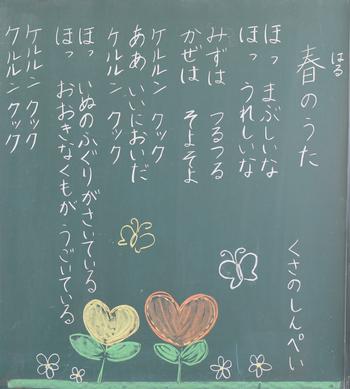 春のうた
はる
くさのしんぺい
ほっ まぶしいな
ほっ うれしいな
みずは つるつる
かぜは そよそよ
ケルルン クック
ああ いいにおいだ
ケルルン クック
ほっ いぬのふぐりがさいている
ほっ おおきなくもがうごいている
ケルルン クック
ケルルン クック